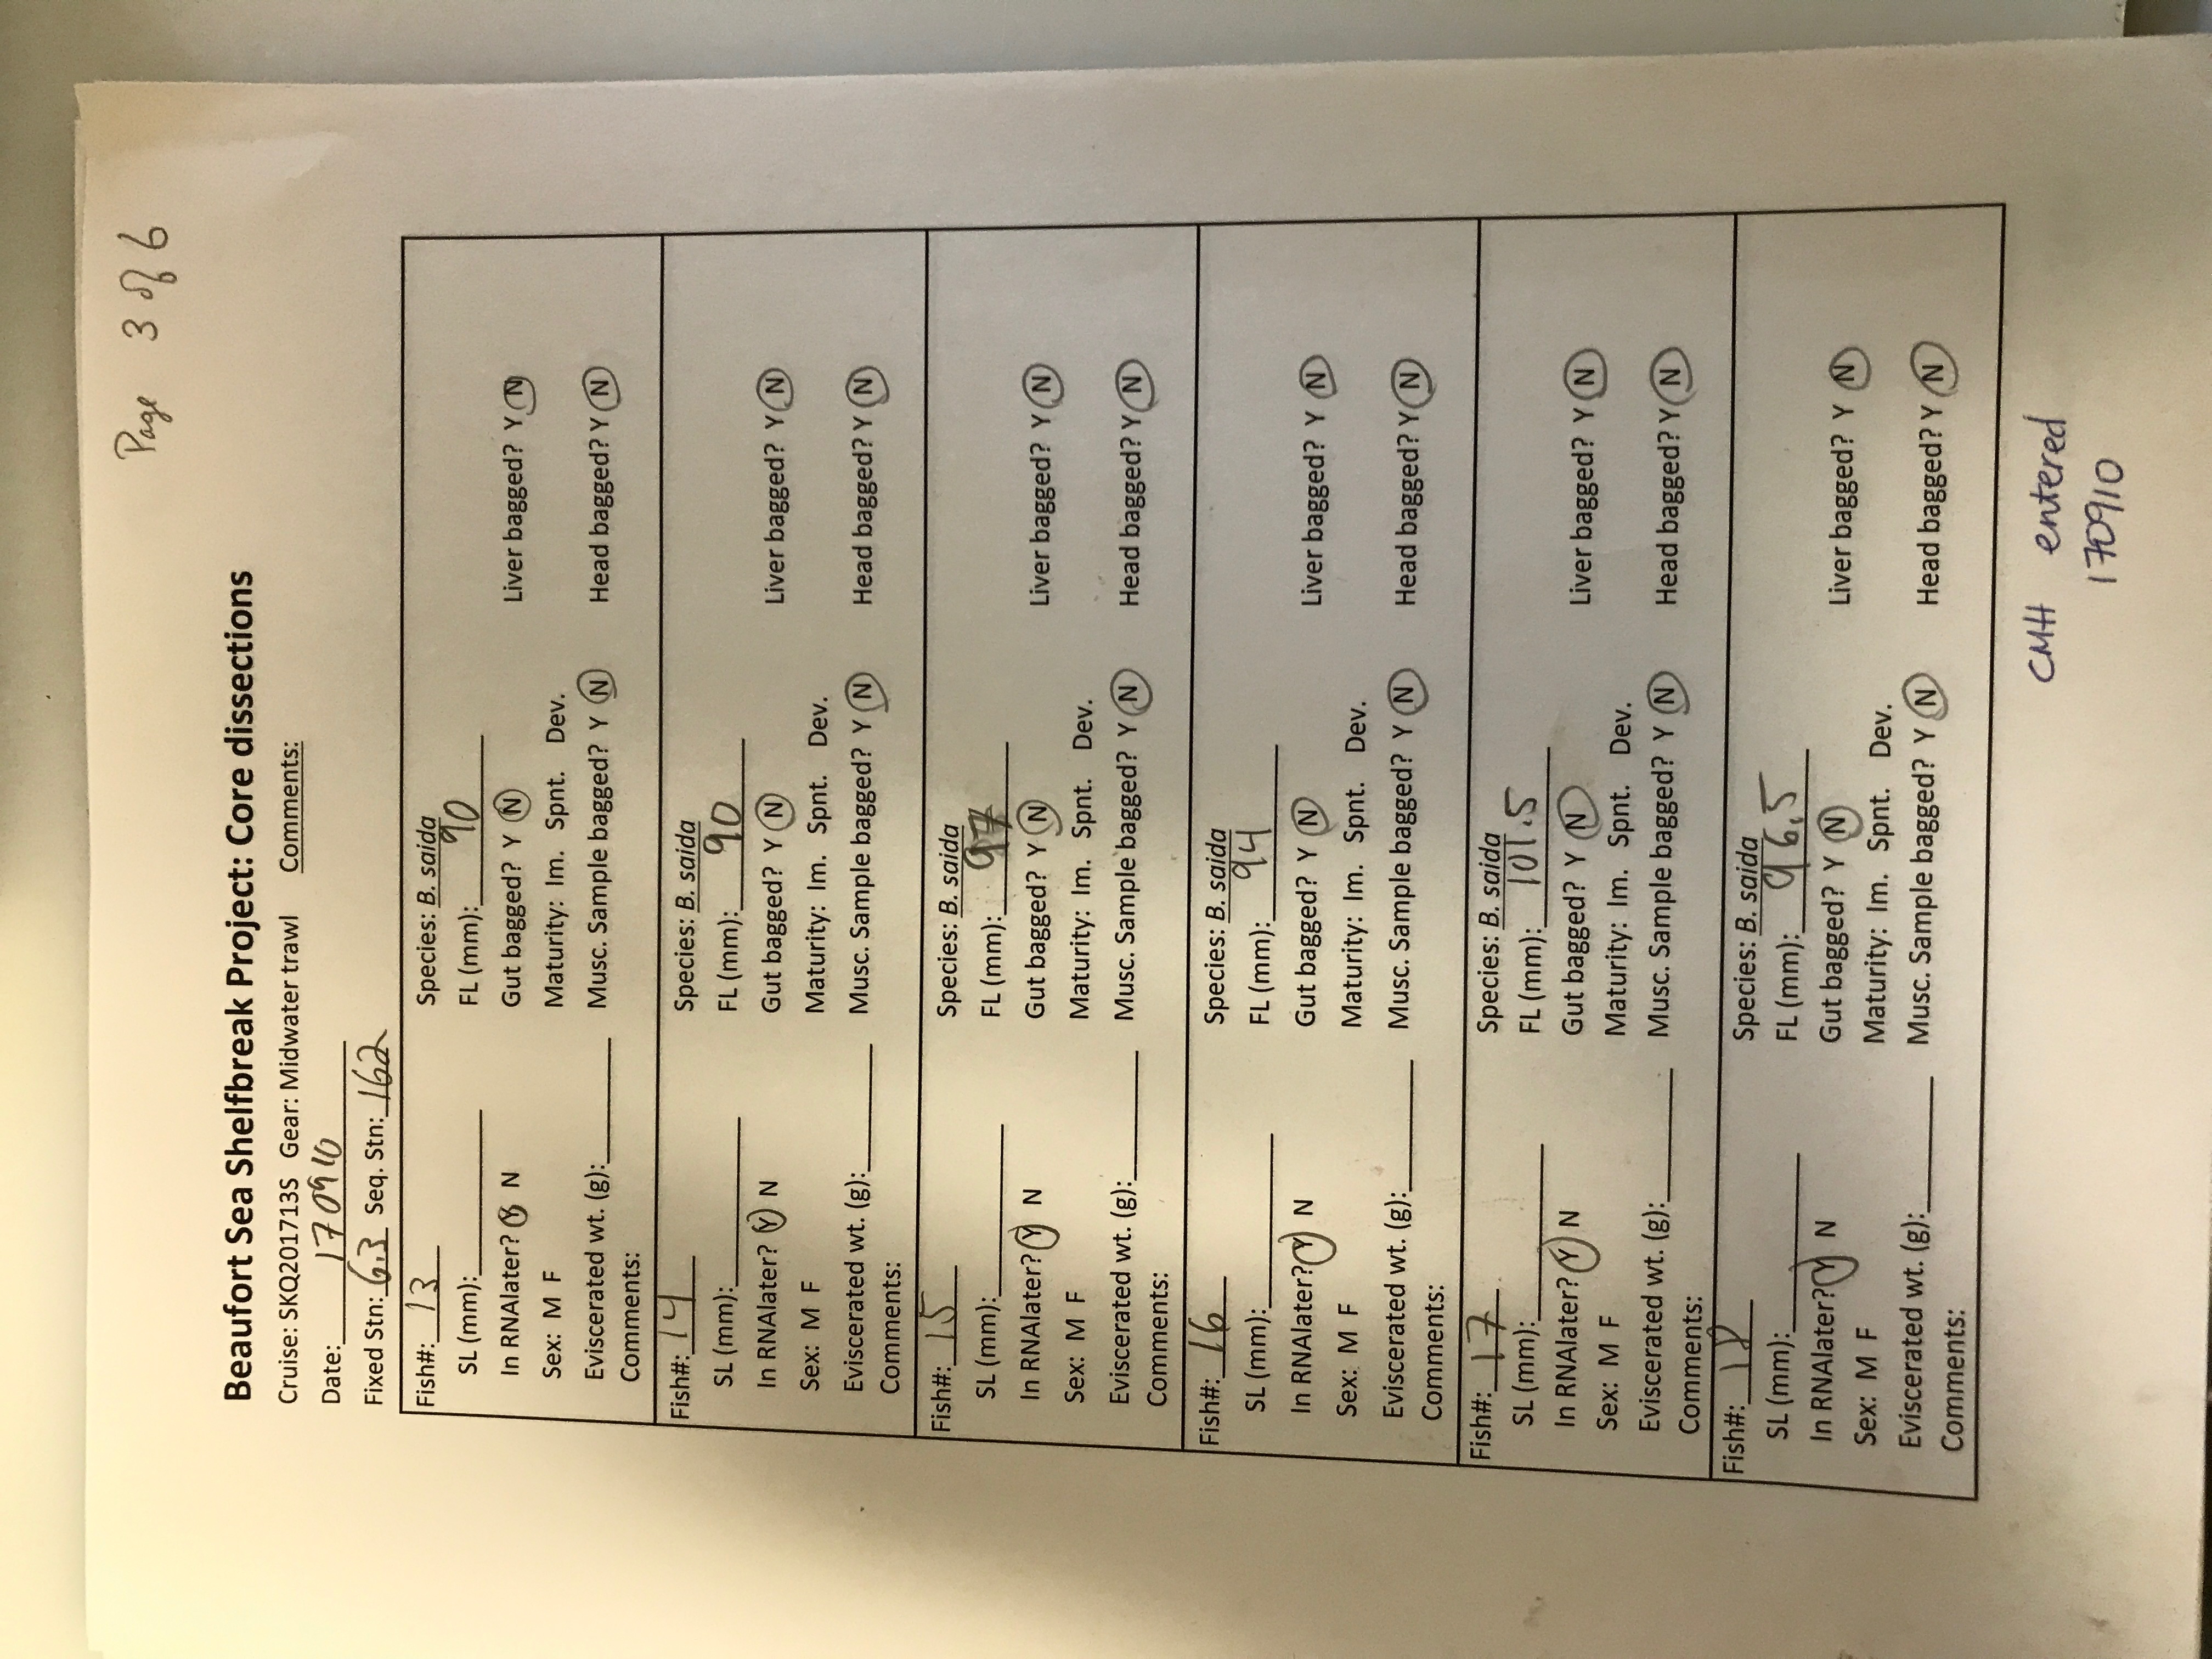 Page 3 of 6
Beaufort Sea Shelfbreak Project: Core dissections
Cruise: SKQ201713S Gear: Midwater trawl Comments:
Date: 170910
Fixed Stn: 6.3 Seq. Stn: 162
Fish#: 13 Species: B. saida
SL (mm): FL (mm): 90
In RNAlater? Y N Gut bagged? Y N Liver bagged? Y N
Sex: M F Maturity: Im. Spnt. Dev.
Eviscerated wt. (g): Musc. Sample bagged? Y N Head bagged? Y N
Comments:
Fish#: 14 Species: B. saida
SL (mm): FL (mm): 90
In RNAlater? Y N Gut bagged? Y N Liver bagged? Y N
Sex: M F Maturity: Im. Spnt. Dev.
Eviscerated wt. (g): Musc. Sample bagged? Y N Head bagged? Y N
Comments:
Fish#: 15 Species: B. saida
SL (mm): FL (mm): 97
In RNAlater? Y N Gut bagged? Y N Liver bagged? Y N
Sex: M F Maturity: Im. Spnt. Dev.
Eviscerated wt. (g): Musc. Sample bagged? Y N Head bagged? Y N
Comments:
Fish#: 16 Species: B. saida
SL (mm): FL (mm): 94
In RNAlater? Y N Gut bagged? Y N Liver bagged? Y N
Sex: M F Maturity: Im. Spnt. Dev.
Eviscerated wt. (g): Musc. Sample bagged? Y N Head bagged? Y N
Comments:
Fish#: 17 Species: B. saida
SL (mm): FL (mm): 101.5
In RNAlater? Y N Gut bagged? Y N Liver bagged? Y N
Sex: M F Maturity: Im. Spnt. Dev.
Eviscerated wt. (g): Musc. Sample bagged? Y N Head bagged? Y N
Comments:
Fish#: 18 Species: B. saida
SL (mm): FL (mm): 96.5
In RNAlater? Y N Gut bagged? Y N Liver bagged? Y N
Sex: M F Maturity: Im. Spnt. Dev.
Eviscerated wt. (g): Musc. Sample bagged? Y N Head bagged? Y N
Comments:
CMH entered
170910